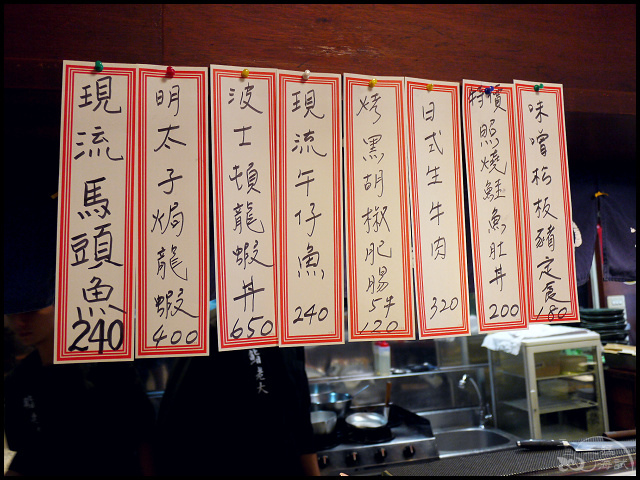 現流馬頭魚
240
明太子焗龍蝦
400
波士頓龍蝦丼
650
現流午仔魚
240
烤黑胡椒肥腸
5牛
120
日式生牛肉
320
特價
照燒鮭魚肚丼
200
味噌松板豬定食
180
老大